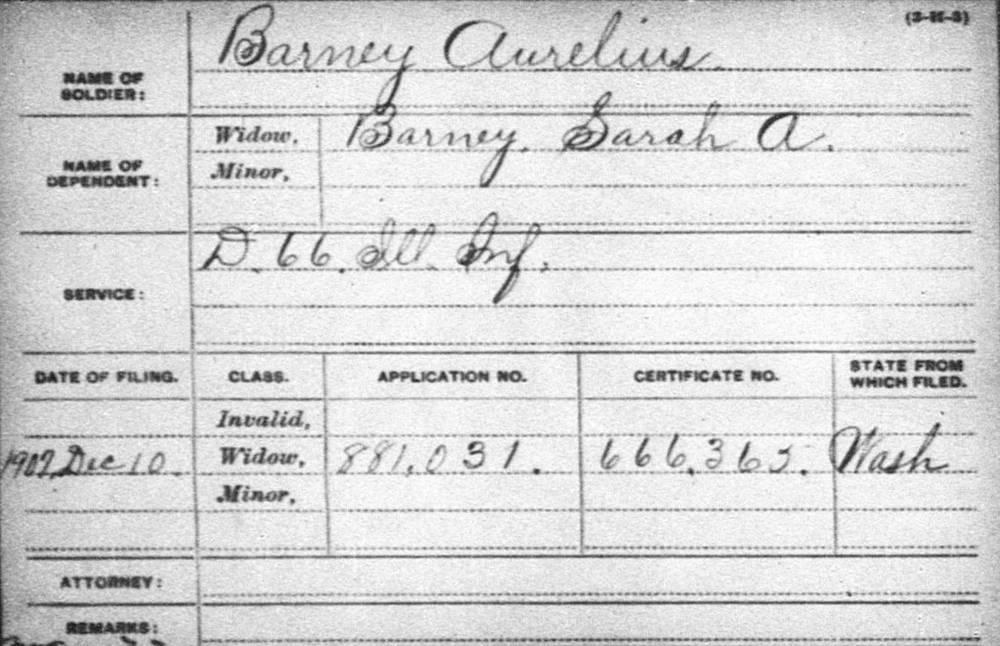 (3-H-3)
NAME OF SOLDIER: Barney Aurelius
NAME OF DEPENDENT: Widow, Barney, Sarah A.
Minor,
SERVICE: D. 66. Ill. Inf.
DATE OF FILING. CLASS. APPLICATION NO. CERTIFICATE NO. STATE FROM WHICH FILED.
Invalid,
1907 Dec 10. Widow, 881,031. 666,365. Wash
Minor,
ATTORNEY:
REMARKS: